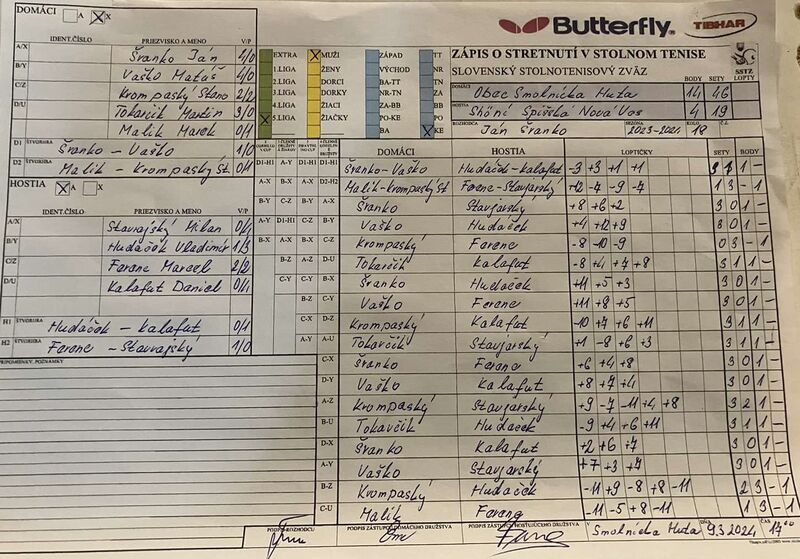 DOMÁCI A X
IDENT.ČÍSLO PRIEZVISKO A MENO V/P
A/X Šranko Ján 4/0
B/Y Vaško Matúš 4/0
C/Z Krompaský Stano 2/2
D/U Tokarčík Martin 3/0
Malik Marek 0/1
D1 ŠTVORHRA Šranko - Vaško 1/0
D2 ŠTVORHRA Malik - Krompaský St. 0/1
HOSTIA X X
IDENT.ČÍSLO PRIEZVISKO A MENO V/P
A/X Stavrajský Milan 0/4
B/Y Hudáček Vladimír 1/3
C/Z Ferenc Marcel
D/U Kalafut Daniel 0/4
H1 ŠTVORHRA Hudáček - Kalafut 0/1
H2 ŠTVORHRA Ferenc - Stavrajský 1/0
PRIPOMIENKY, POZNÁMKY
Butterfly TIBHAR
EXTRA X MUŽI ZÁPAD TT
1.LIGA ŽENY VÝCHOD NR
2.LIGA DORCI BA-TT TN
3.LIGA DORKY NR-TN ZA
4.LIGA ŽIACI ZA-BB BB
X 5.LIGA ŽIAČKY PO-KE PO
BA X KE
ZÁPIS O STRETNUTÍ V STOLNOM TENISE
SLOVENSKÝ STOLNOTENISOVÝ ZVÄZ SSTZ
BODY SETY
DOMÁCI Obec Smolnícka Huta 14 46
HOSTIA Spišská Nová Ves 4 19
ROZHODCA Ján Šranko 2023-2024 18
DOMÁCI HOSTIA LOPTIČKY SETY BODY
D1-H1 Šranko-Vaško Hudáček-Kalafut -3 +3 +1 +1 3 1 1 -
D2-H2 Malik-Krompaský St. Ferenc-Stavjarský +12 -7 -9 -7 1 3 - 1
A-X Šranko Stavjarský +8 +6 +2 3 0 1 -
B-Y Vaško Hudáček +4 +12 +9 3 0 1 -
C-Z Krompaský Ferenc -8 -10 -9 0 3 - 1
D-U Tokarčík Kalafut -8 +4 +7 +8 3 1 1 -
Šranko Hudáček +11 +5 +3 3 0 1 -
Vaško Ferenc +11 +8 +5 3 0 1 -
Krompaský Kalafut -10 +7 +6 +11 3 1 1 -
Tokarčík Stavjarský +1 -8 +6 +3 3 1 1 -
C-X Šranko Ferenc +6 +4 +8 3 0 1 -
D-Y Vaško Kalafut +8 +7 +4 3 0 1 -
A-Z Krompaský Stavjarský +9 -7 -11 +4 +8 3 2 1 -
B-U Tokarčík Hudáček -9 +4 +6 +11 3 1 1 -
D-X Šranko Kalafut +2 +6 +7 3 0 1 -
A-Y Vaško Stavjarský +7 +3 +7 3 0 1 -
B-Z Krompaský Hudáček -11 +9 -8 +8 -11 2 3 - 1
C-U Malik Ferenc -11 -5 +8 -11 1 3 - 1
PODPIS ROZHODCU PODPIS ZÁSTUPCU DOMÁCEHO DRUŽSTVA PODPIS ZÁSTUPCU HOSŤUJÚCEHO DRUŽSTVA V Smolnícka Huta DŇA 9.3.2024 ČAS 17 00